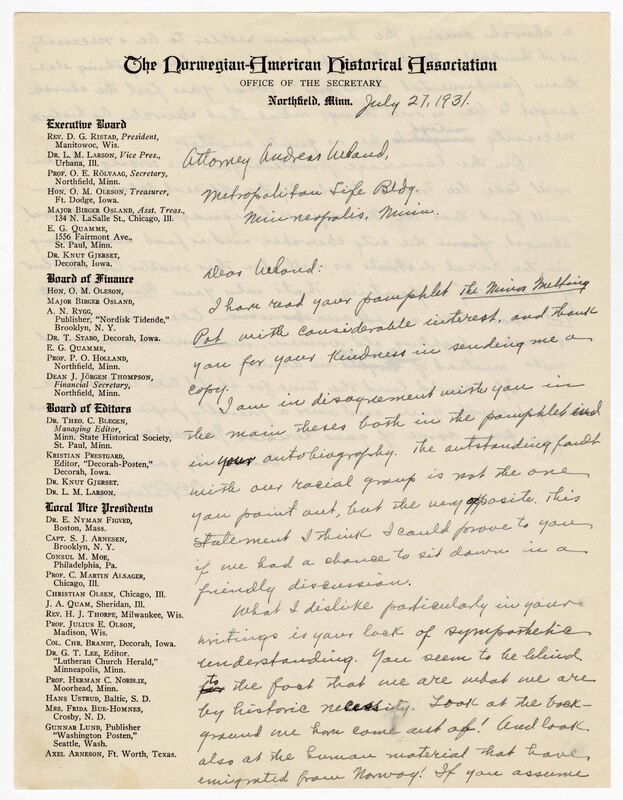 The Norwegian-American Historical Association
OFFICE OF THE SECRETARY
Northfield, Minn. July 27, 1931.
Executive Board
REV. D. G. RISTAD, President,
Manitowoc, Wis.
DR. L. M. LARSON, Vice Pres.,
Urbana, Ill.
PROF. O. E. RÖLVAAG, Secretary,
Northfield, Minn.
HON. O. M. OLESON, Treasurer,
Ft. Dodge, Iowa.
MAJOR BIRGER OSLAND, Asst. Treas.,
134 N. LaSalle St., Chicago, Ill.
E. G. QUAMME,
1556 Fairmont Ave.,
St. Paul, Minn.
DR. KNUT GJERSET,
Decorah, Iowa.
Board of Finance
HON. O. M. OLESON,
MAJOR BIRGER OSLAND,
A. N. RYGG,
Publisher, "Nordisk Tidende,"
Brooklyn, N. Y.
DR. T. STABO, Decorah, Iowa.
E. G. QUAMME,
PROF. P. O. HOLLAND,
Northfield, Minn.
DEAN J. JÖRGEN THOMPSON,
Financial Secretary,
Northfield, Minn.
Board of Editors
DR. THEO. C. BLEGEN,
Managing Editor,
Minn. State Historical Society,
St. Paul, Minn.
KRISTIAN PRESTGARD,
Editor, "Decorah-Posten,"
Decorah, Iowa.
DR. KNUT GJERSET,
DR. L. M. LARSON,
Local Vice Presidents
DR. E. NYMAN FIGVED,
Boston, Mass.
CAPT. S. J. ARNESEN,
Brooklyn, N. Y.
CONSUL M. MOE,
Philadelphia, Pa.
PROF. C. MARTIN ALSAGER,
Chicago, Ill.
CHRISTIAN OLSEN, Chicago, Ill.
J. A. QUAM, Sheridan, Ill.
REV. H. J. THORPE, Milwaukee, Wis.
PROF. JULIUS E. OLSON,
Madison, Wis.
COL. CHR. BRANDT, Decorah, Iowa.
DR. G. T. LEE, Editor.
"Lutheran Church Herald,"
Minneapolis, Minn.
PROF. HERMAN C. NORDLIE,
Moorhead, Minn.
HANS USTRUD, Baltic, S. D.
MRS. FRIDA BUE-HOMNES,
Crosby, N. D.
GUNNAR LUND, Publisher
"Washington Posten,"
Seattle, Wash.
AXEL ARNESON, Ft. Worth, Texas.
Attorney Andreas Ueland,
Metropolitan Life Bldg.
Minneapolis, Minn.
Dear Ueland:
I have read your pamphlet The Minor Melting
Pot with considerable interest, and thank
you for your kindness in sending me a
copy.
I am in disagreement with you in
the main theses both in the pamphlet and
in your autobiography. The outstanding fault
with our racial group is not the one
you point out, but the very opposite. This
statement I think I could prove to you
if we had a chance to sit down in a
friendly discussion.
What I dislike particularly in your
writings is your lack of sympathetic
understanding. You seem to be blind
to the fact that we are what we are
by historic necessity. Look at the back-
ground we have come out of! And look
also at the human material that have
emigrated from Norway! If you assume